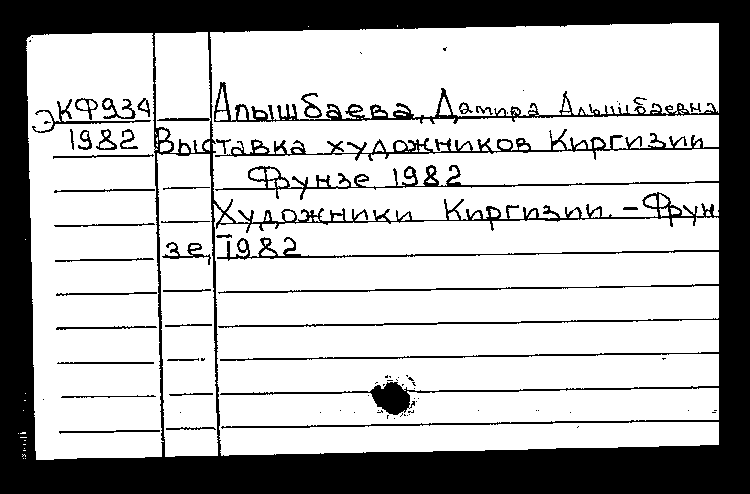 ЭКФ934 Алышбаева, Дамира Алышбаевна
1982 Выставка художников Киргизии
Фрунзе 1982
Художники Киргизии. – Фрун
зе, 1982